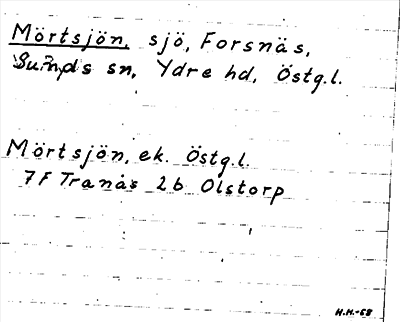 Mörtsjön, sjö, Forsnäs,
Sunds sn, Ydre hd, Östg.l.
Mörtsjön, ek. Östg.l.
7F Tranås 2b Olstorp
H.H.-68